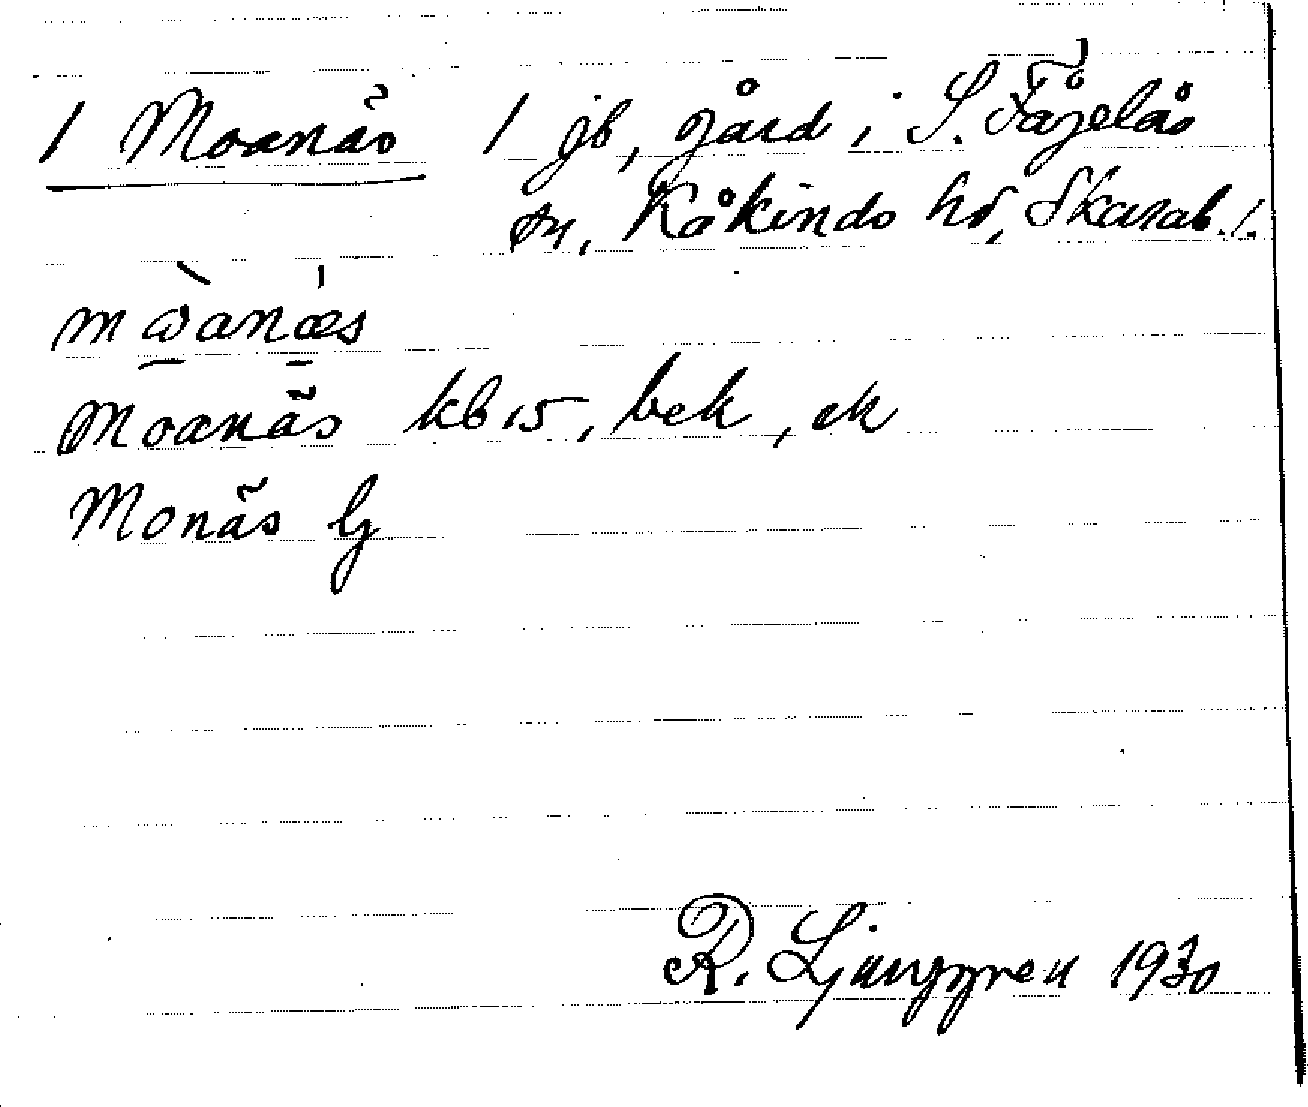 / Moanäs / jb, gård i S. Fågelås
sn, Kåkinds hd, Skarab. l.
mωanæs
Moanäs kb 15, bek, ek
Monäs Gj
R. Ljunggren 1930